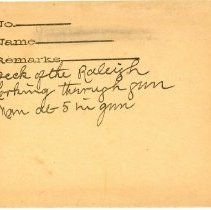 No.
Name
Remarks
eck of the Raleigh
ooking through gun
man at 5 in gun